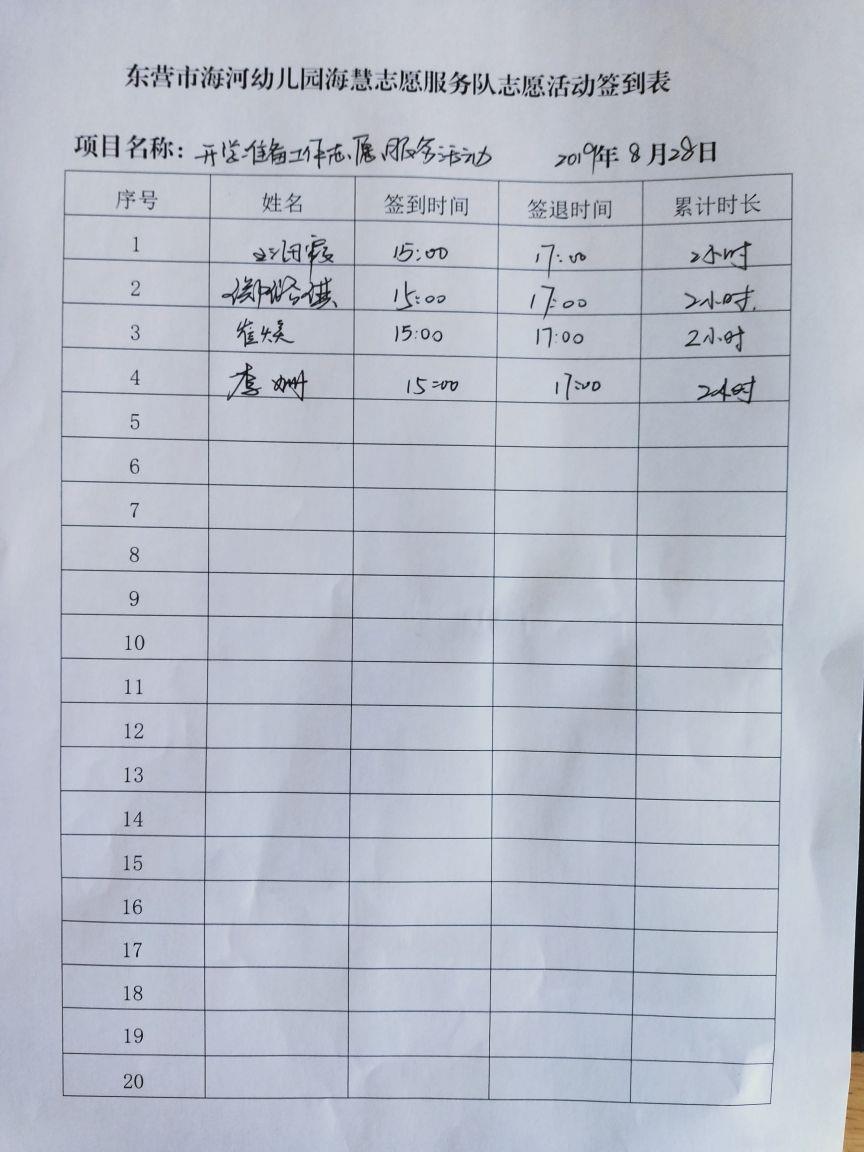 东营市海河幼儿园海慧志愿服务队志愿活动签到表
项目名称：开学准备工作志愿服务活动 2019年8月28日
序号 姓名 签到时间 签退时间 累计时长
1 15:00 17:00 2小时
2 15:00 17:00 2小时.
3 崔焕 15:00 17:00 2小时
4 李姗 15:00 17:00 2小时
5
6
7
8
9
10
11
12
13
14
15
16
17
18
19
20